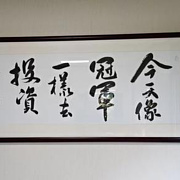 今天像
冠軍
一樣去
投資